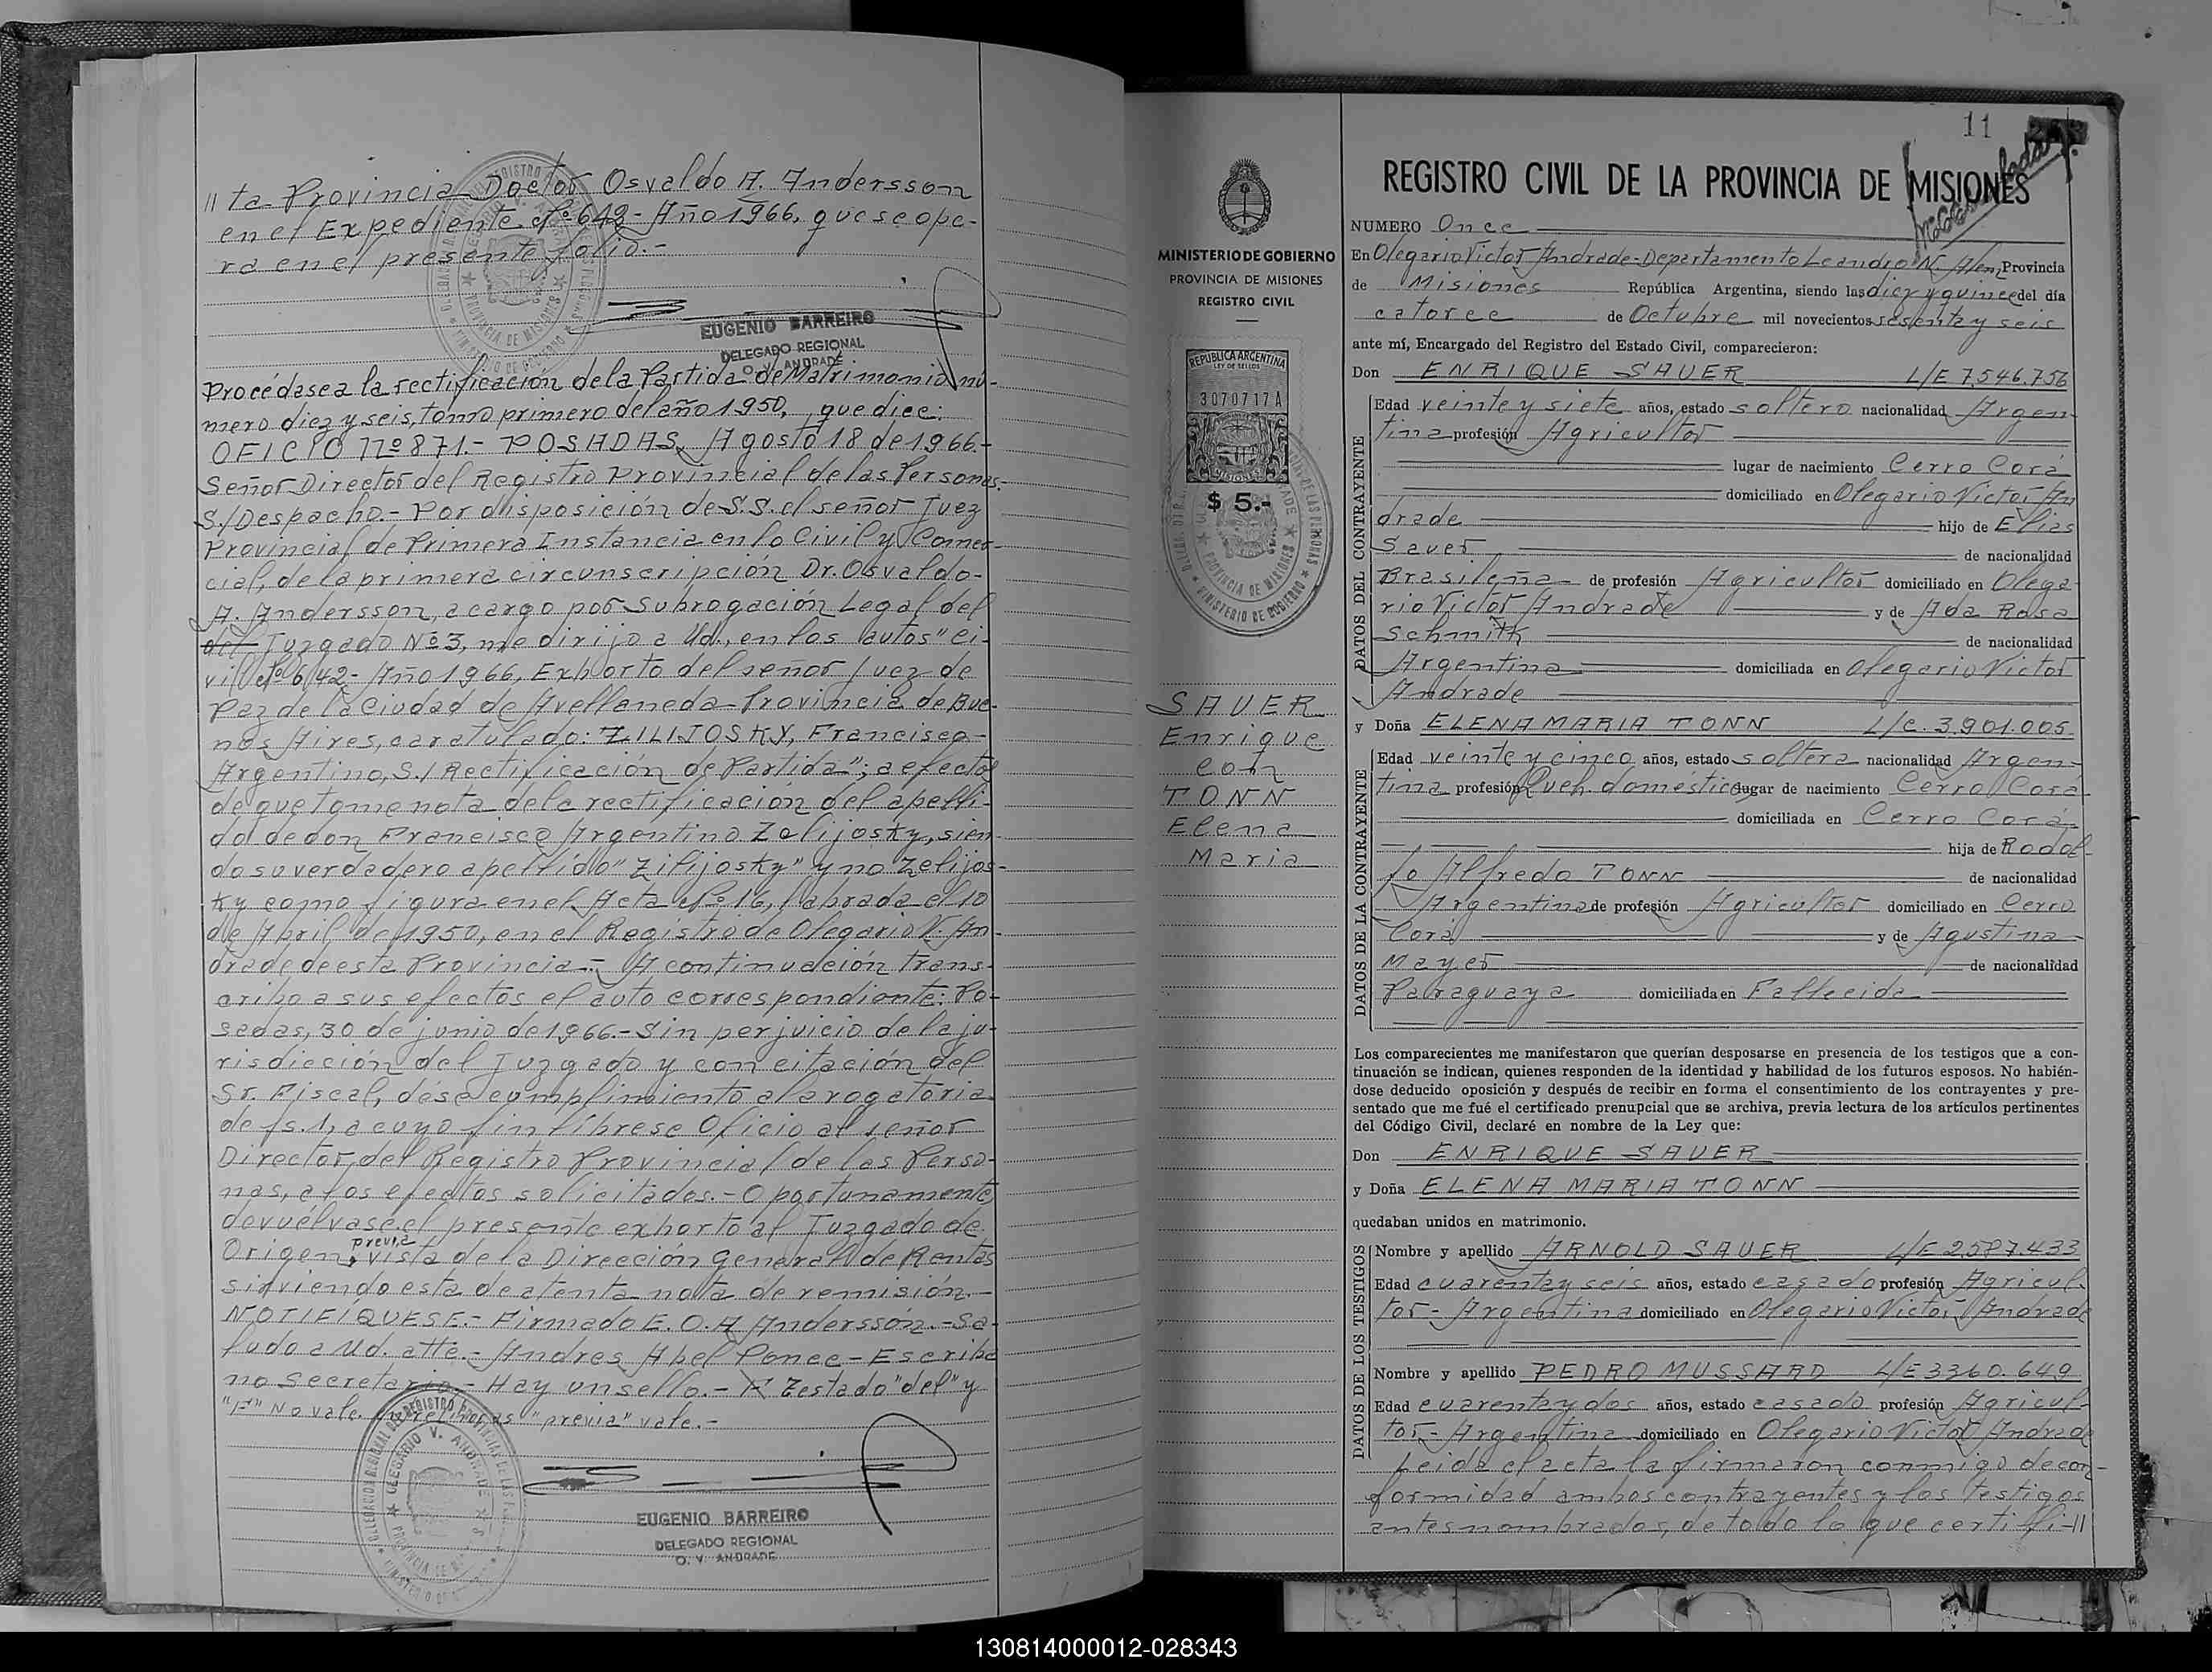 // ta Provincia Doctor Osvaldo A. Andersson
en el Expediente Nº 642 - Año 1966, que se ope-
ra en el presente folio.-
EUGENIO BARREIRO
DELEGADO REGIONAL
O. V. ANDRADE
Procédase a la rectificación de la Partida de Matrimonio nú-
mero diez y seis, tomo primero del año 1950, que dice:
OFICIO Nº 871.- POSADAS, Agosto 18 de 1966.-
Señor Director del Registro Provincial de las Personas.
S./Despacho.- Por disposición de S.S. el señor Juez
Provincial de Primera Instancia en lo Civil y Comer-
cial, de la primera circunscripción Dr. Osvaldo-
A. Andersson, a cargo por Subrogación Legal del
del Juzgado Nº 3, me dirijo a Ud., en los autos "ci-
vil Nº 642 - Año 1966, Exhorto del señor Juez de
Paz de la Ciudad de Avellaneda - Provincia de Bue-
nos Aires, caratulado: ZILIJOSKY, Francisco-
Argentino, S./ Rectificación de Partida"; a efectos
de que tome nota de la rectificación del apelli-
do de don Francisco Argentino Zelijosky, sien-
do su verdadero apellido "Zilijosky" y no Zelijos-
ky como figura en el Acta Nº 16, labrada el 10
de Abril de 1950, en el Registro de Olegario V. An-
drade de esta Provincia.- A continuación trans-
cribo a sus efectos el auto correspondiente: Po-
sadas, 30 de junio de 1966.- Sin perjuicio de la ju-
risdicción del Juzgado y con citación del
Sr. Fiscal, dése cumplimiento a la rogatoria
de fs. 1, a cuyo fin líbrese Oficio al señor
Director del Registro Provincial de las Perso-
nas, a los efectos solicitados.- Oportunamente
devuélvase el presente exhorto al Juzgado de
Origen, previa vista de la Dirección General de Rentas
sirviendo esta de atenta nota de remisión.-
NOTIFÍQUESE.- Firmado E. O. A Andersson.- Sa-
ludo a Ud. atte.- Andres Abel Ponce - Escriba
no Secretario.- Hay un sello.- Testado "del" y
"F" No vale. Entrelíneas "previa" vale.-
EUGENIO BARREIRO
DELEGADO REGIONAL
O. V. ANDRADE
MINISTERIO DE GOBIERNO
PROVINCIA DE MISIONES
REGISTRO CIVIL
REPUBLICA ARGENTINA
LEY DE SELLOS
3070717A
$ 5.-
SAUER
Enrique
con
TONN
Elena
Maria
11
REGISTRO CIVIL DE LA PROVINCIA DE MISIONES
NUMERO Once
En Olegario Victor Andrade - Departamento Leandro N. Alem Provincia
de Misiones República Argentina, siendo las diez y quince del día
catorce de Octubre mil novecientos sesenta y seis
ante mí, Encargado del Registro del Estado Civil, comparecieron:
Don ENRIQUE SAUER L/E 7.546.756
DATOS DEL CONTRAYENTE
Edad veinte y siete años, estado soltero nacionalidad Argen-
tina profesión Agricultor
lugar de nacimiento Cerro Corá
domiciliado en Olegario Victor An
drade hijo de Elias
Sauer de nacionalidad
Brasileña de profesión Agricultor domiciliado en Olega-
rio Victor Andrade y de Ada Rosa
Schmith de nacionalidad
Argentina domiciliada en Olegario Victor
Andrade
y Doña ELENA MARIA TONN L/C. 3.901.005
DATOS DE LA CONTRAYENTE
Edad veinte y cinco años, estado soltera nacionalidad Argen-
tina profesión Queh. domésticos lugar de nacimiento Cerro Corá
domiciliada en Cerro Corá
hija de Rodol-
fo Alfredo TONN de nacionalidad
Argentina de profesión Agricultor domiciliado en Cerro
Corá y de Agustina
Mayer de nacionalidad
Paraguaya domiciliada en Fallecida
Los comparecientes me manifestaron que querían desposarse en presencia de los testigos que a con-
tinuación se indican, quienes responden de la identidad y habilidad de los futuros esposos. No habién-
dose deducido oposición y después de recibir en forma el consentimiento de los contrayentes y pre-
sentado que me fué el certificado prenupcial que se archiva, previa lectura de los artículos pertinentes
del Código Civil, declaré en nombre de la Ley que:
Don ENRIQUE SAUER
y Doña ELENA MARIA TONN
quedaban unidos en matrimonio.
DATOS DE LOS TESTIGOS
Nombre y apellido ARNOLD SAUER L/E 2.587.433
Edad cuarenta y seis años, estado casado profesión Agricul-
tor - Argentina domiciliado en Olegario Victor Andrade
Nombre y apellido PEDRO MUSSARD L/E 3360.649
Edad cuarenta y dos años, estado casado profesión Agricul-
tor - Argentina domiciliado en Olegario Victor Andrade
Leida el acta la firmaron conmigo de con-
formidad ambos contrayentes y los testigos
antes nombrados, de todo lo que certifi-//
130814000012-028343